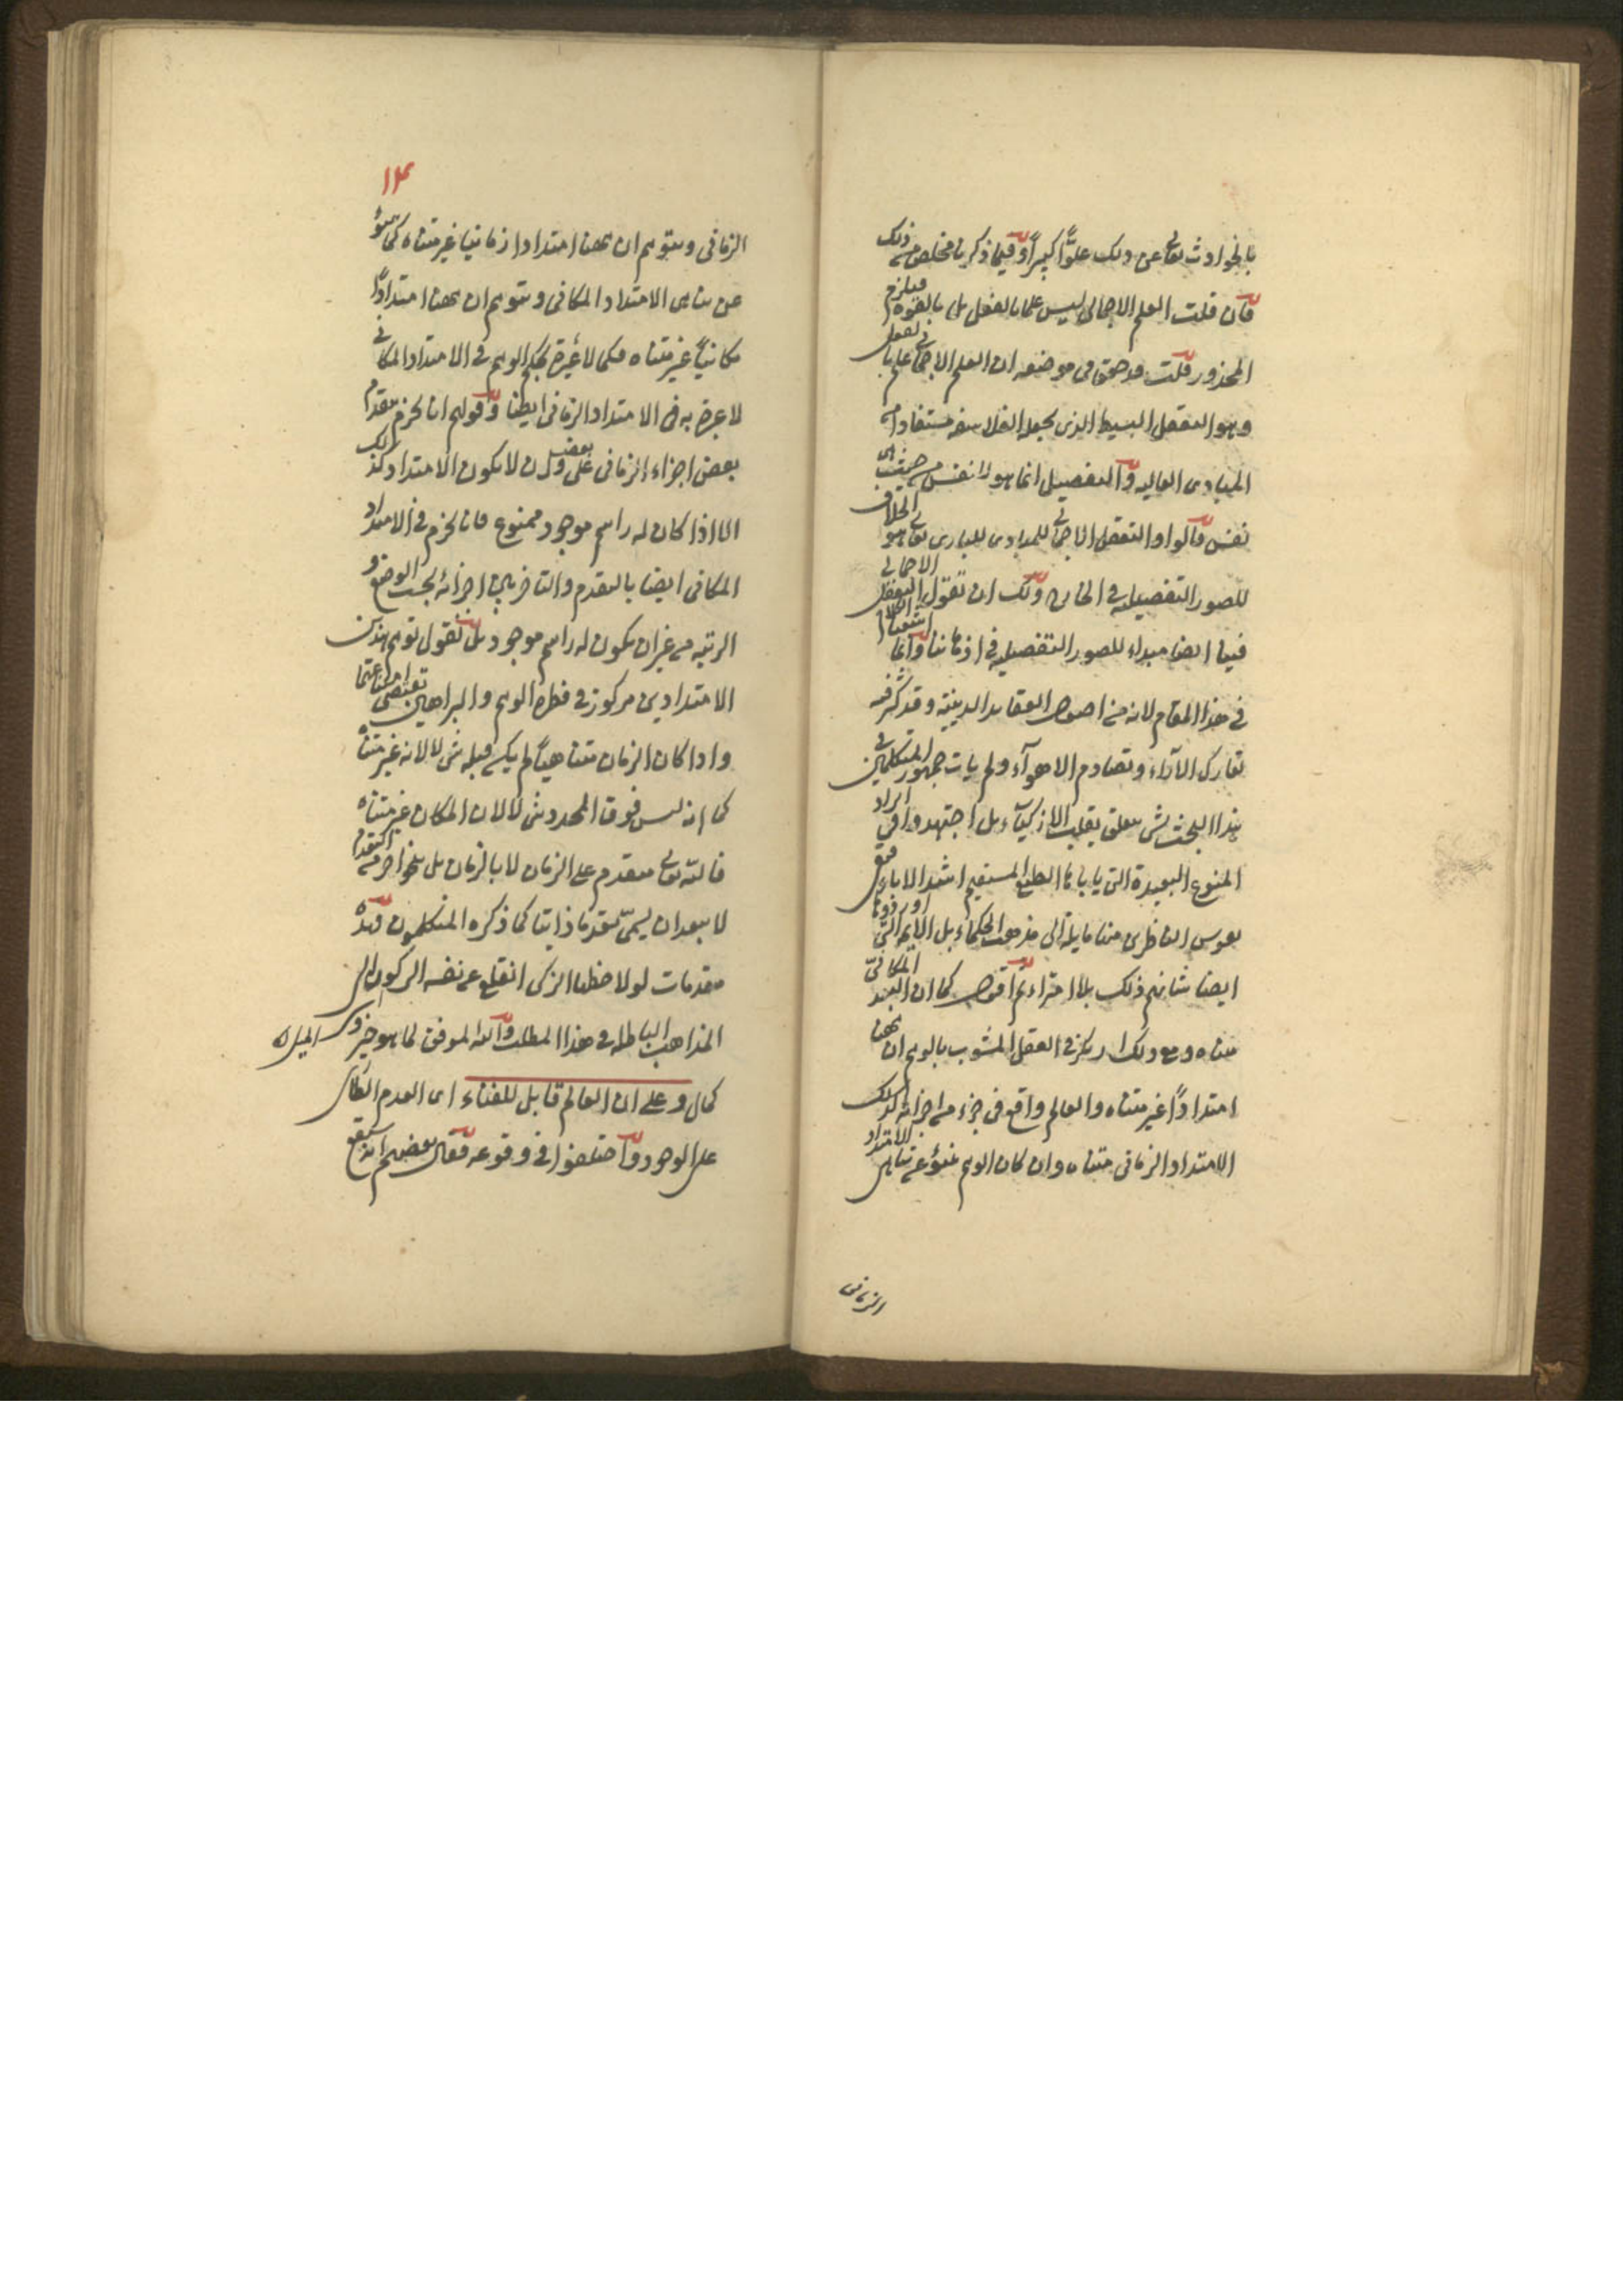 بالحوادث تعالى عن ذلك علوًّا كبيرًا وفيما ذكرنا مخلص من ذلك
فان قلت العلم الاجمالى ليس علما بالفعل بل بالقوة فيلزم
المحذور قلت قد حقق فى موضعه ان العلم الاجمالى علم بالفعل
وهو التعقل البسيط الذى يجعله الفلاسفه مستفادا من
المبادى العاليه والتفصيل انما هو للنفس من حيث هى
نفس قالوا والتعقل الاجمالى للمبادى للبارى تعالى هو الخلاق
للصور التفصيليه فى الخارج ولك ان تقول التعقل الاجمالى
فينا ايضا مبداء للصور التفصيليه فى اذهاننا وانما اشبعنا الكلام
فى هذا المقام لانه من اصول العقايد الدينية وقد كثر فيه
تعارك الآراء وتصادم الاهوآء ولم يات جمهور المتكلمين فى
هذا البحث بشى يعلق بقلب الازكيآء بل اجتهدوا فى ايراد
المنوع البعيدة التى يابا ها الطبع المستقيم اشد الاباء فبقى
نفوس الناظرين مايلة الى مذهب الحكماء بل الادلة التى اوردوها
ايضا شانهم ذلك بلا امتراء ثم اقول كما ان البعد المكانىّ
متناه ومع ذلك ارتكز فى العقل المشوب بالوهم ان ههنا
امتدادًا غير متناه والعالم واقع فى جزء من اجزائه كذلك
الامتداد الزمانى متناه وان كان الوهم ينبؤ عن تناهى الامتداد
الزمانى
١٣
الزمانى ويتوهم ان ههنا امتدادا زمانيا غير متناه كما ينبؤ
عن تناهى الامتداد المكانى ويتوهم ان ههنا امتدادًا
مكانيًا غير متناه فكما لا عبرة بحكم الوهم فى الامتداد المكانى
لا عبرة به فى الامتداد الزمانى ايضا وقولهم انا نجزم بتقدم
بعض اجزاء الزمانى على بعض ولا يكون الامتداد كذلك
الا اذا كان له راسم موجود ممنوع فانا نجزم فى الامتداد
المكانى ايضا بالتقدم والتاخر بين اجزائه بحسب الوضع و
الرتبه من غير ان يكون له راسم موجود بل نقول توهم هذين
الامتدادين مركوز فى فطرة الوهم والبراهين تقتضى امتناعهما
واذا كان الزمان متناهيًا لم يكن قبله شى لا لانه غير متناه
كما انه ليس فوق المحدد شى لا لان المكان غير متناه
فالله تعالى متقدم على الزمان لا بالزمان بل بنحو اخر من التقدم
لا يبعد ان يسمّى تقدما ذاتيا كما ذكره المتكلمون فهذه
مقدمات لو لاحظها الزكى انقلع عن نفسه الركون الى
المذاهب الباطله فى هذا المطلب والله الموفق لما هو خير و
كمال وعلى ان العالم قابل للفناء اى العدم الطارى
على الوجود واختلفوا فى وقوعه فقال بعضهم انه سيقع